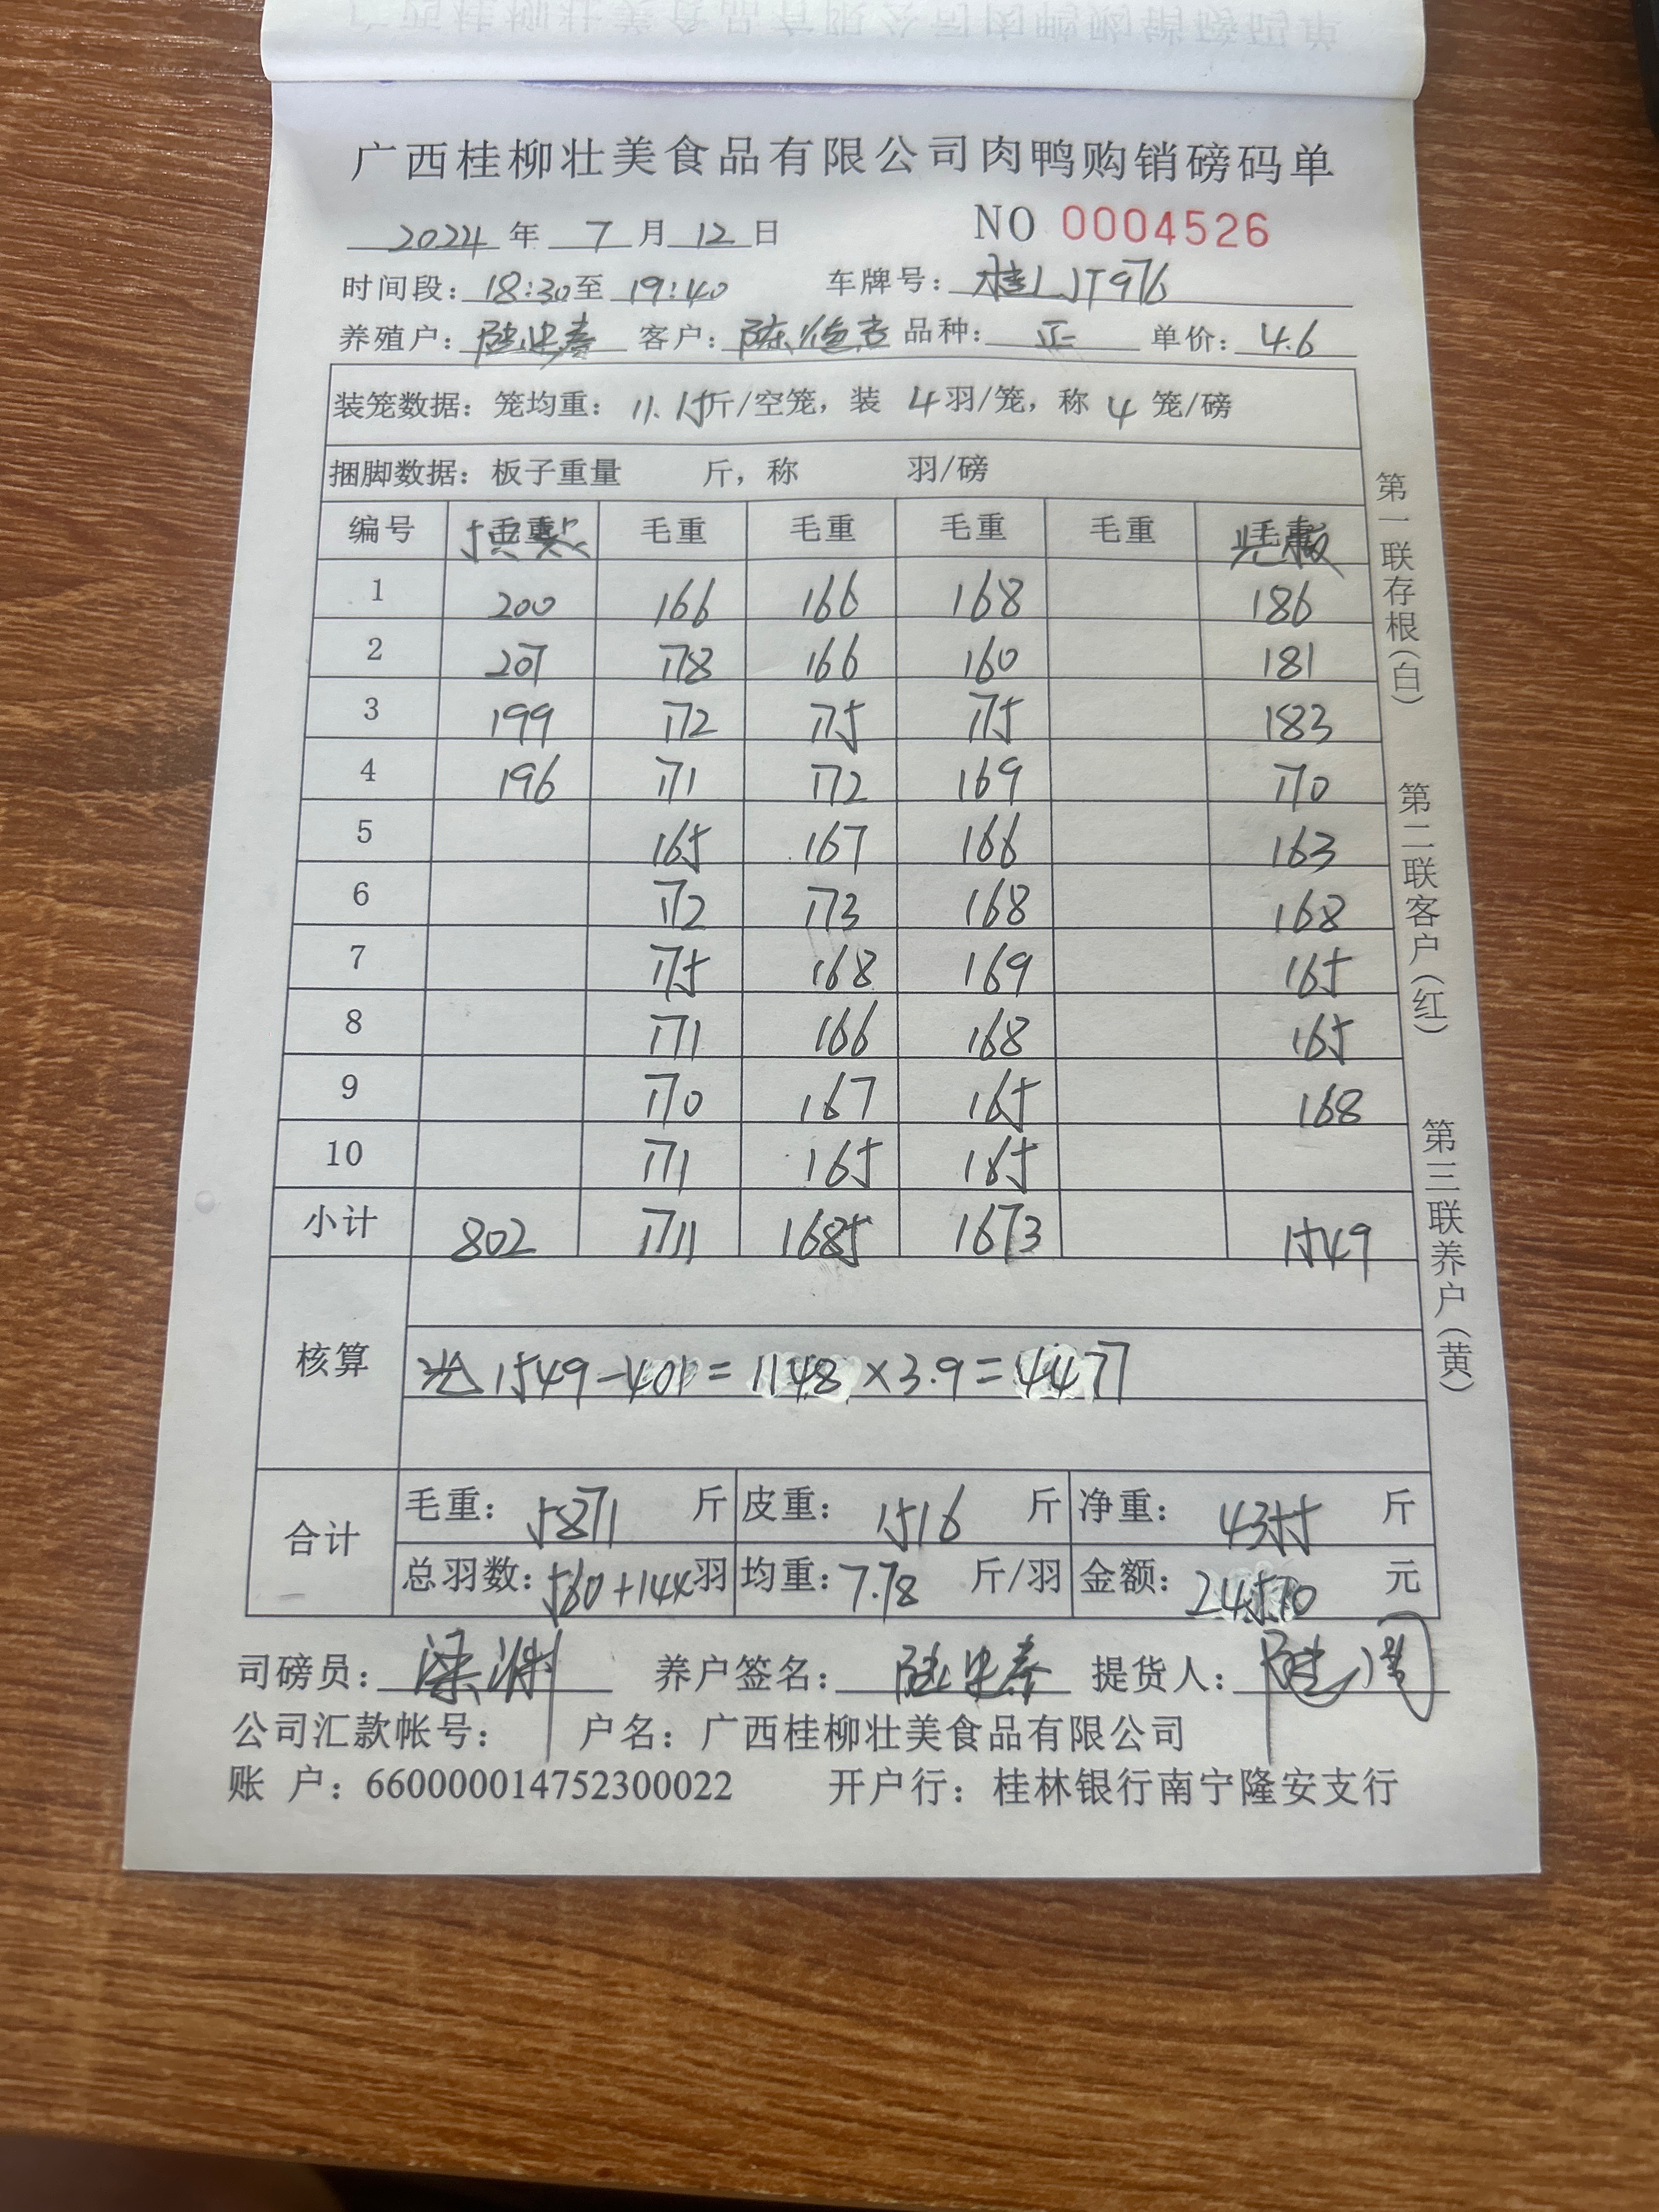 广西桂柳壮美食品有限公司肉鸭购销磅码单
2024 年 7 月 12 日 NO 0004526
时间段：18:30至 19:40 车牌号：桂LJT976
养殖户： 客户：陈 品种：正 单价：4.6
装笼数据：笼均重：11.15斤/空笼，装 4羽/笼，称 4 笼/磅
捆脚数据：板子重量 斤，称 羽/磅
编号 毛重 毛重 毛重 毛重 毛重 毛重
1 200 166 166 168 186
2 207 178 166 160 181
3 199 172 175 175 183
4 196 171 172 169 170
5 165 167 166 163
6 172 173 168 168
7 175 168 169 165
8 171 166 168 165
9 170 167 165 168
10 171 165 165
小计 802 1711 1685 1673 1549
核算
光 1549-401=1148×3.9=4477
合计
毛重：5871 斤 皮重：1516 斤 净重：4355 斤
总羽数：560+144羽 均重：7.78 斤/羽 金额：24510 元
司磅员：梁 养户签名： 提货人：
公司汇款帐号： 户名：广西桂柳壮美食品有限公司
账 户：660000014752300022 开户行：桂林银行南宁隆安支行
第一联存根（白） 第二联客户（红） 第三联养户（黄）